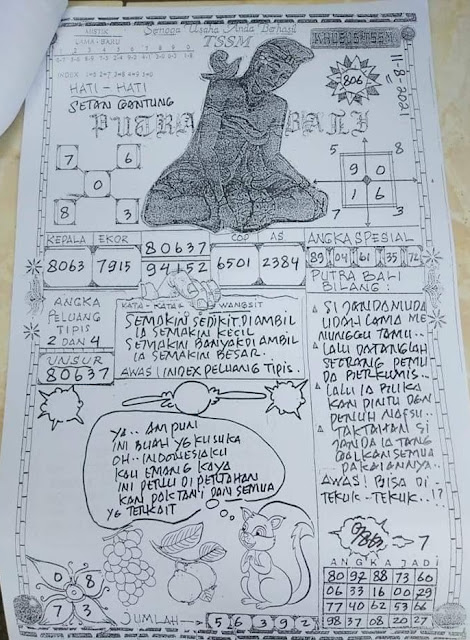 Semoga Usaha Anda Berhasil
MISTIK
TSSM
LAMA-BARU
KHUSUS TSSM
1 2 3 4 5 6 7 8 9 0
11-8-2021
806
HATI - HATI
SETAN GANTUNG
PUTRA BALI
7 6
0
8 3
5 8
9 0
1 6
7 3
KEPALA EKOR
8063 7915
80637
94152
COP AS
6501 2384
ANGKA SPESIAL
89 04 61 35 72
ANGKA
PELUANG
TIPIS
2 DAN 4
UNSUR
80637
KATA - KATA WANGSIT
SEMAKIN SEDIKIT DIAMBIL
IA SEMAKIN KECIL
SEMAKIN BANYAK DIAMBIL
IA SEMAKIN BESAR.
AWAS! INDEX PELUANG TIPIS.
PUTRA BALI
BILANG :
SI JANDA MUDA
UDAH LAMA ME
NUNGGU TAMU..
LALU DATANGLAH
SEORANG PEMU
DA BERKUMIS..
LALU IA BUKA
KAN PINTU DEN
PENUH NAFSU..
TAK TAHAN SI
JANDA IA TANG
GALKAN SEMUA
PAKAIANNYA..
AWAS! BISA DI -
TEKUK - TEKUK..!?
YA.. AMPUN
INI BUAH YG KUSUKA
OH.. INDONESIAKU
KAU EMANG KAYA
INI PERLU DI PERTAHAN
KAN PAK TANI DAN SEMUA
YG TERKAIT
7
ANGKA JADI
80 97 88 73 60
06 33 16 00 29
77 40 62 53 66
98 37 08 20 27
0 8
7 3
JUMLAH 5 6 3 9 2